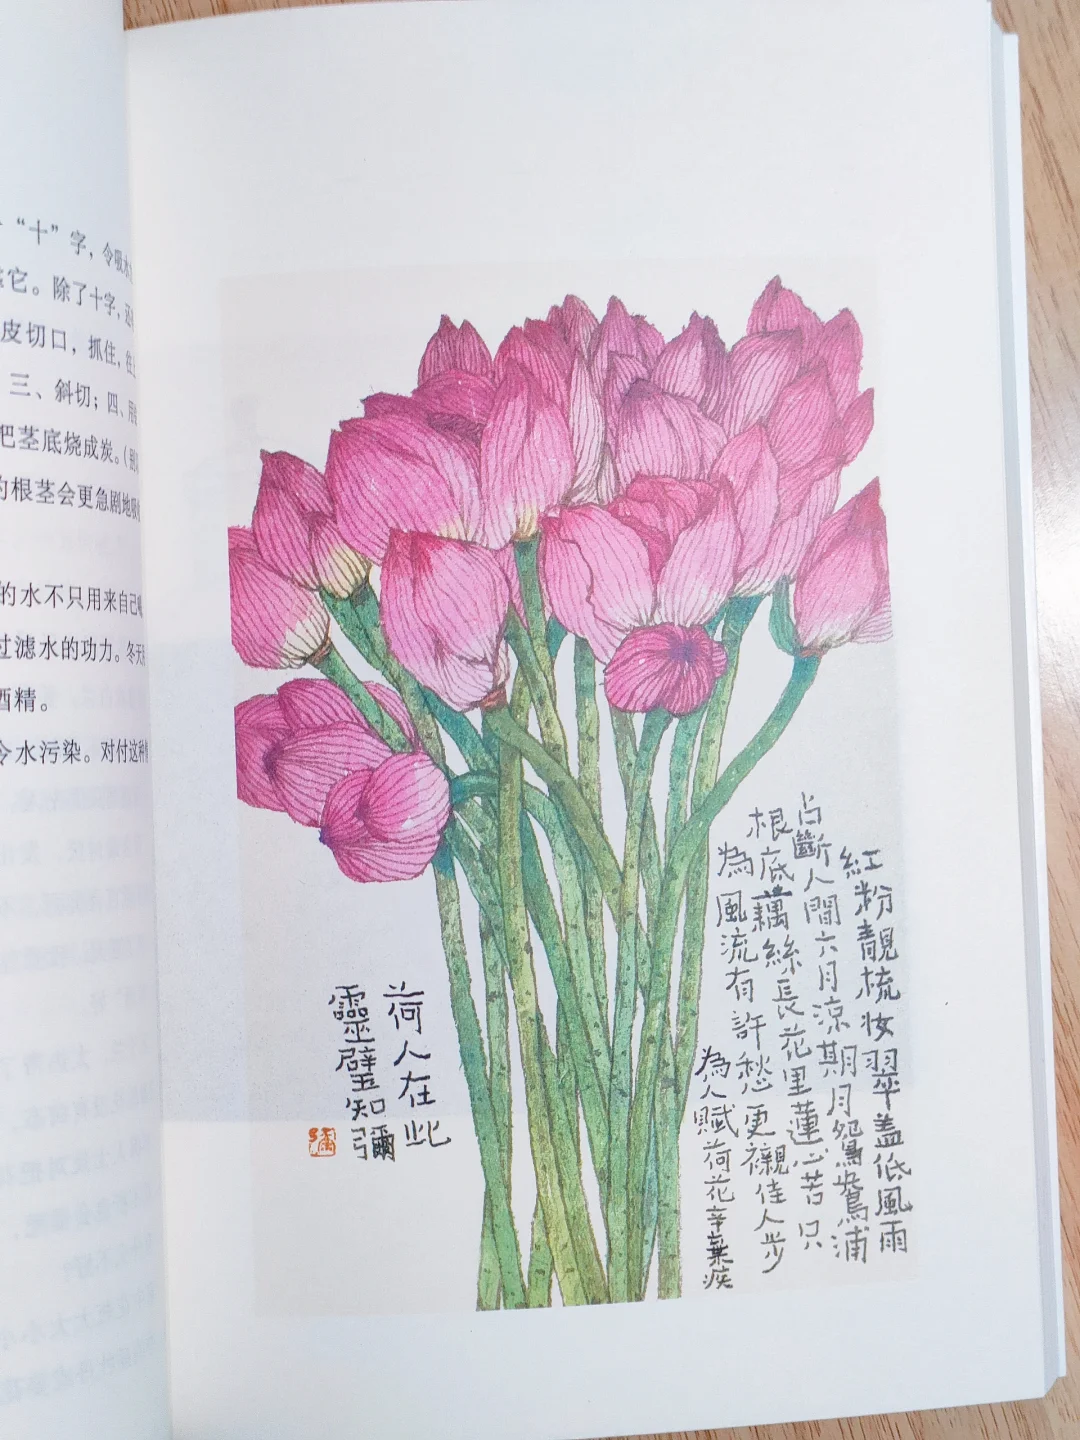 “十”字，令吸水
它。除了十字，
皮切口，抓住，往
三、斜切；四、用
把茎底烧成炭。（
的根茎会更急剧地吸
的水不只用来自己喝
过滤水的功力。冬天
酒精。
令水污染。对付这种
紅粉靚梳妆翠盖低風雨
占斷人間六月涼期月鴛鴦浦
根底藕絲長花里蓮心苦只
為風流有許愁更襯佳人步
為人賦荷花辛棄疾
荷人在此
靈璧知彌